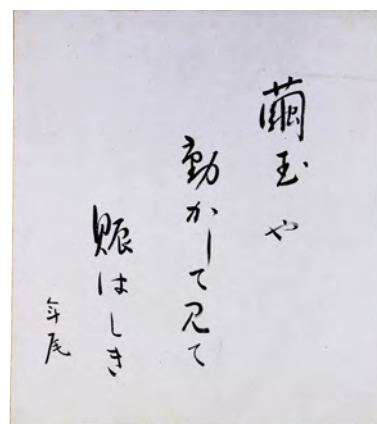 繭玉や
動かして見て
賑はしき
年尾